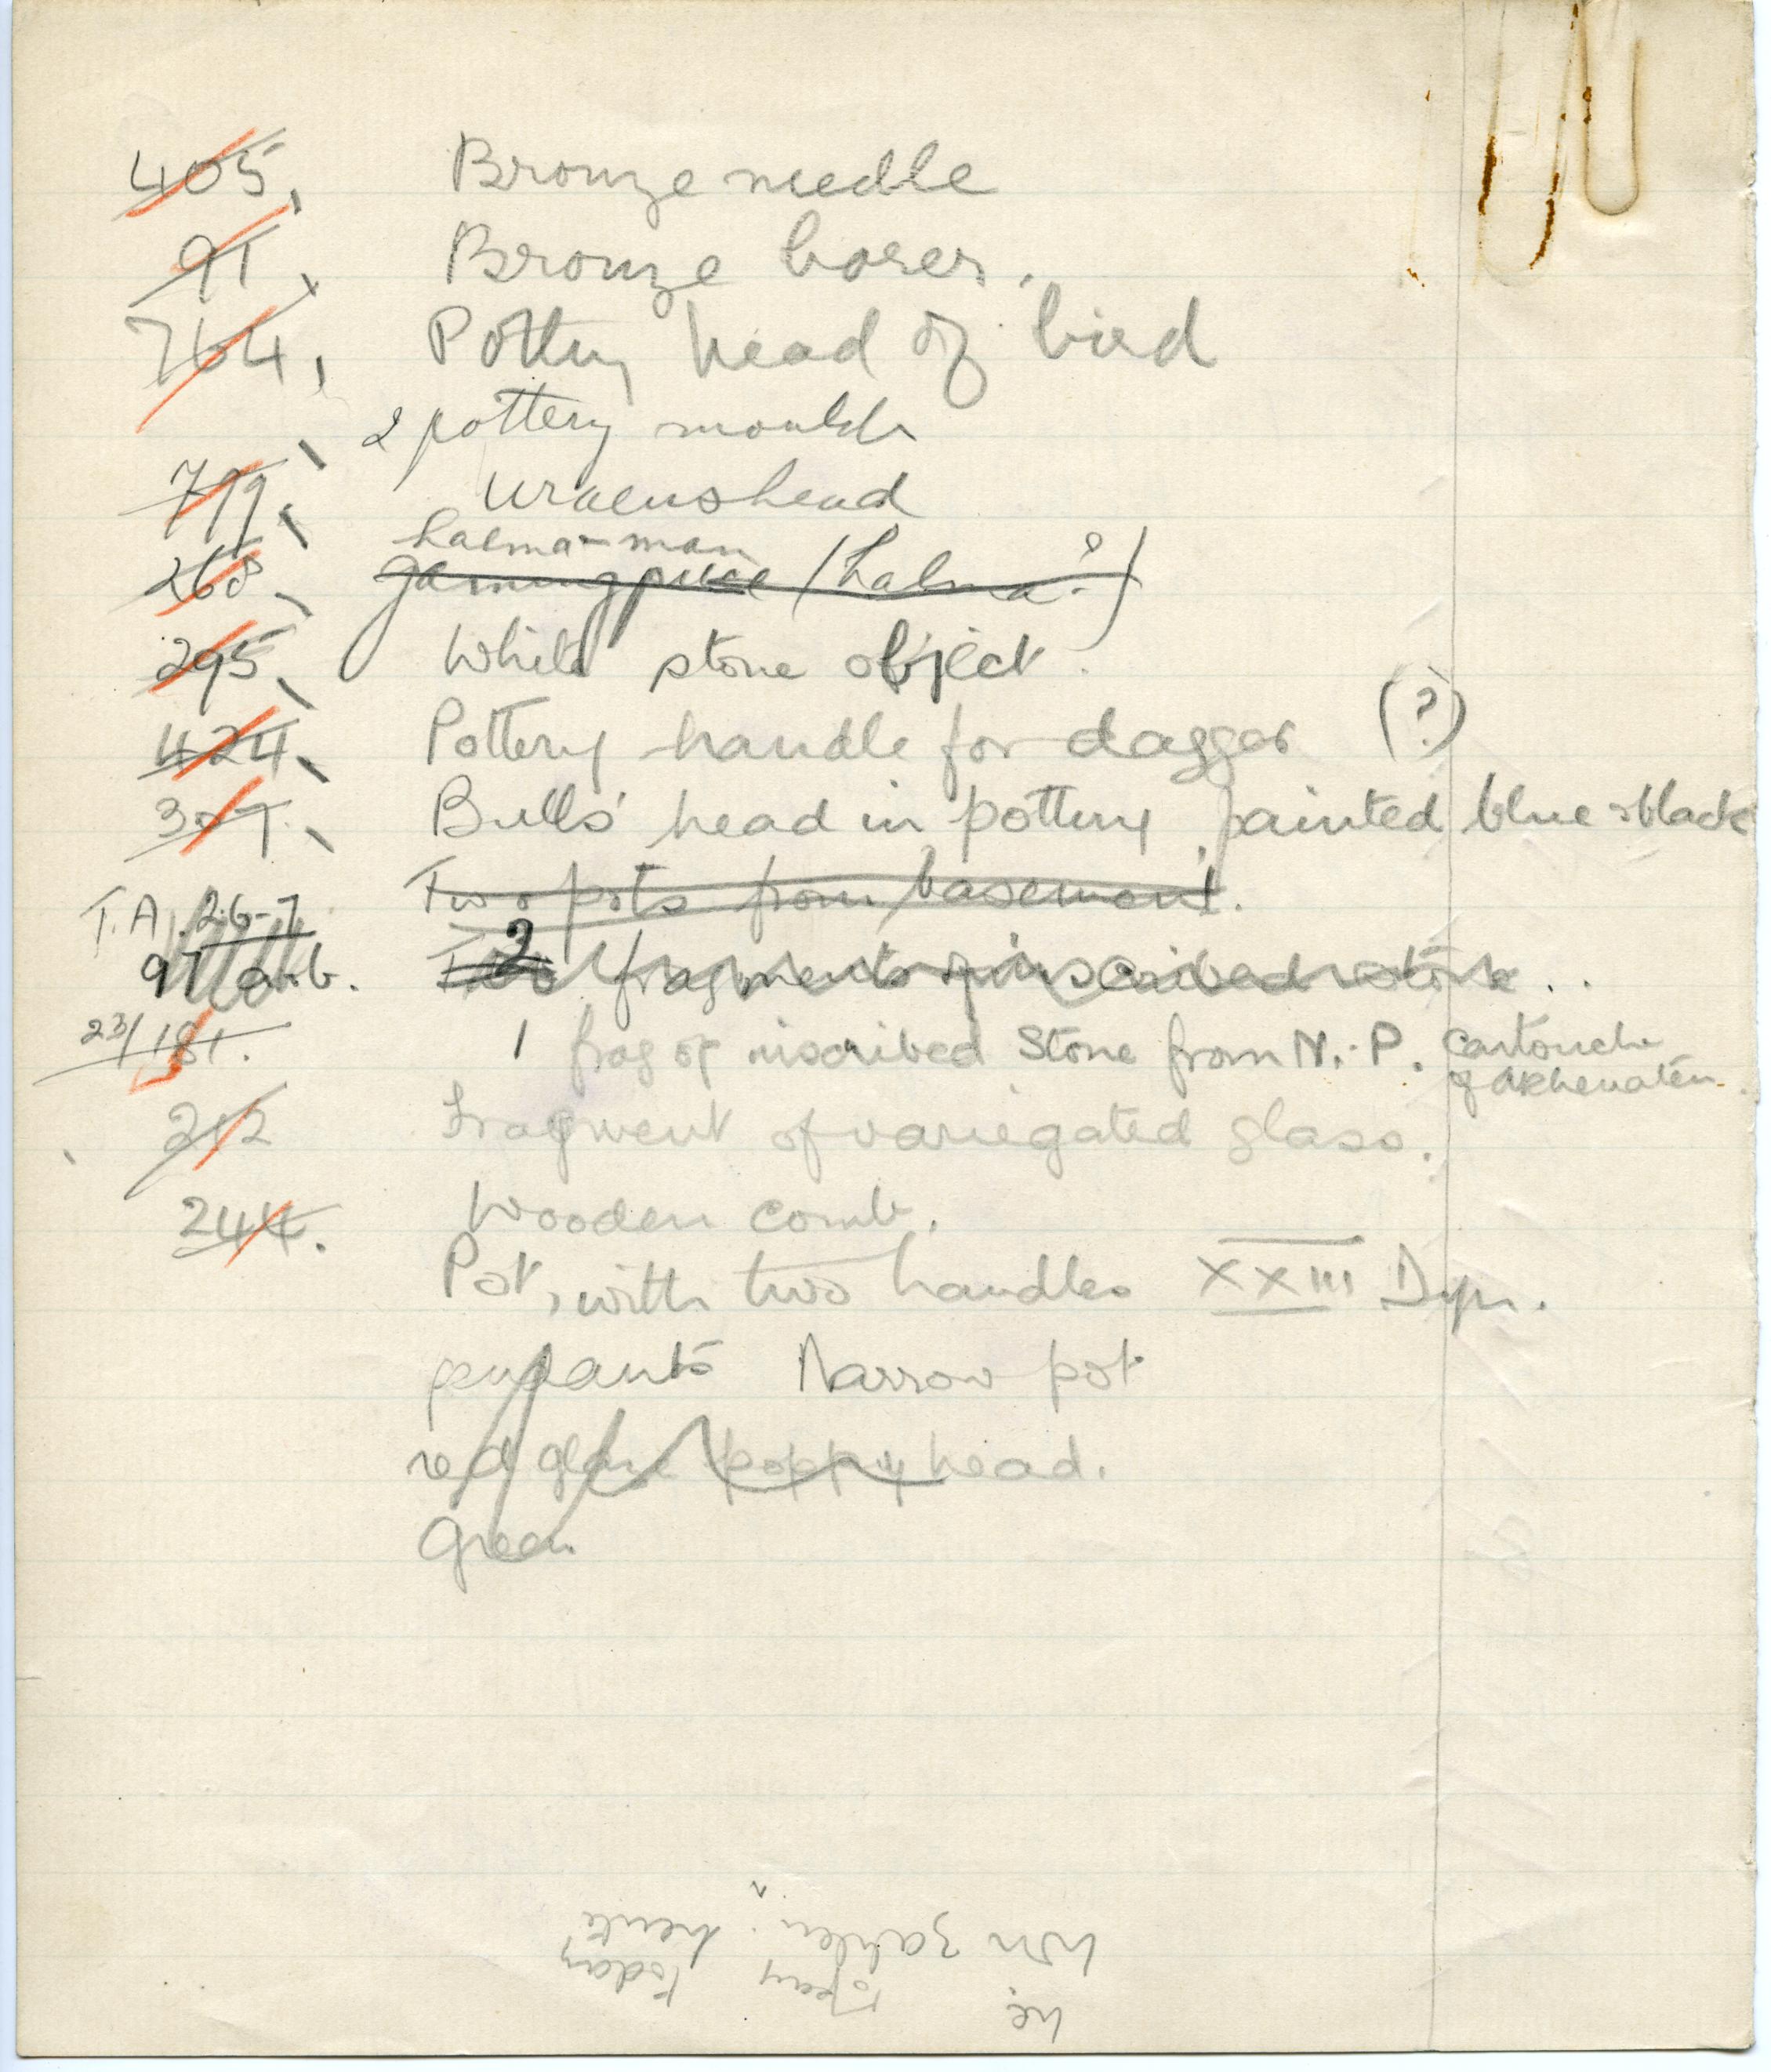 405, Bronze needle
91, Bronze borer.
764, Pottery head of bird
2 pottery moulds
799, Uraeus head
halma-man
268, gaming piece (halma?)
295, White stone object.
424, Pottery handle for dagger (?)
307. Bulls' head in pottery painted blue & black
Two pots from basement.
T.A. 26-7
97 a.b. Two 2 fragments of inscribed stone..
23/181. 1 frag of inscribed Stone from N.P. Cartouche
of Akhenaten.
212 Fragment of variegated glass.
244. Wooden comb.
Pot, with two handles XXIII Dyn.
pendants Narrow pot
red glaze poppy head.
Green
Wir zahlen heute
we pay today